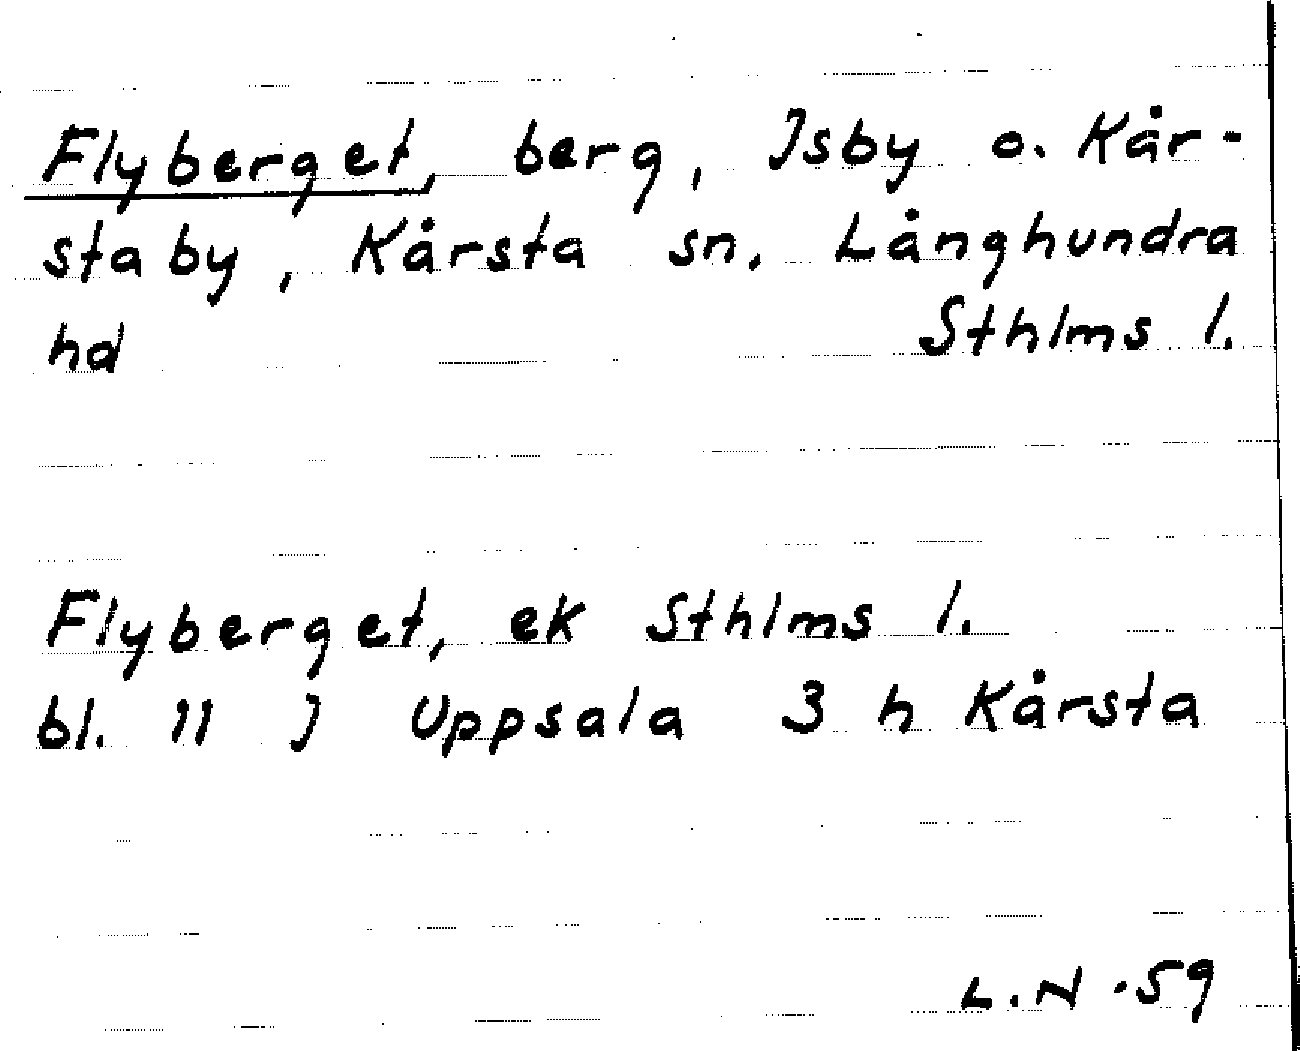 Flyberget, berg, Isby o. Kår-
staby, Kårsta sn, Långhundra
hd Sthlms l.
Flyberget, ek Sthlms l.
bl. 11 J Uppsala 3 h Kårsta
L.N. 59